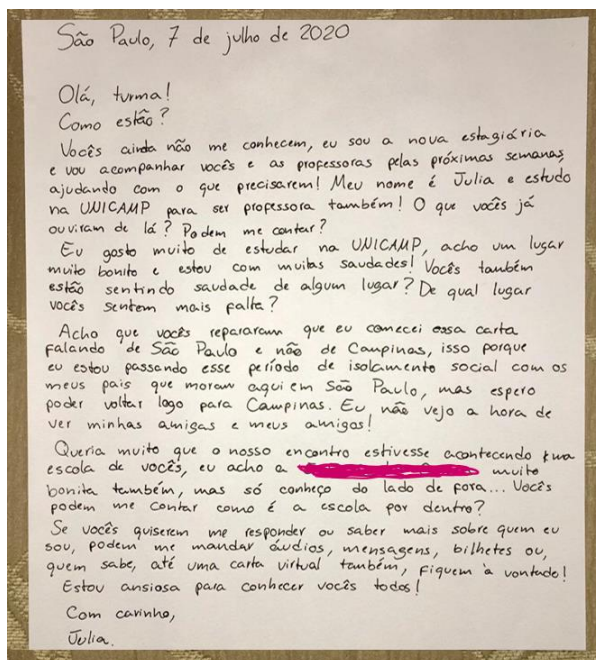 São Paulo, 7 de julho de 2020
Olá, turma!
Como estão?
Vocês ainda não me conhecem, eu sou a nova estagiária
e vou acompanhar vocês e as professoras pelas próximas semanas,
ajudando com o que precisarem! Meu nome é Julia e estudo
na UNICAMP para ser professora também! O que vocês já
ouviram de lá? Podem me contar?
Eu gosto muito de estudar na UNICAMP, acho um lugar
muito bonito e estou com muitas saudades! Vocês também
estão sentindo saudade de algum lugar? De qual lugar
vocês sentem mais falta?
Acho que vocês repararam que eu comecei essa carta
falando de São Paulo e não de Campinas, isso porque
eu estou passando esse período de isolamento social com os
meus pais que moram aqui em São Paulo, mas espero
poder voltar logo para Campinas. Eu não vejo a hora de
ver minhas amigas e meus amigos!
Queria muito que o nosso encontro estivesse acontecendo na
escola de vocês, eu acho a muito
bonita também, mas só conheço do lado de fora... Vocês
podem me contar como é a escola por dentro?
Se vocês quiserem me responder ou saber mais sobre quem eu
sou, podem me mandar áudios, mensagens, bilhetes ou,
quem sabe, até uma carta virtual também, fiquem à vontade!
Estou ansiosa para conhecer vocês todos!
Com carinho,
Julia.